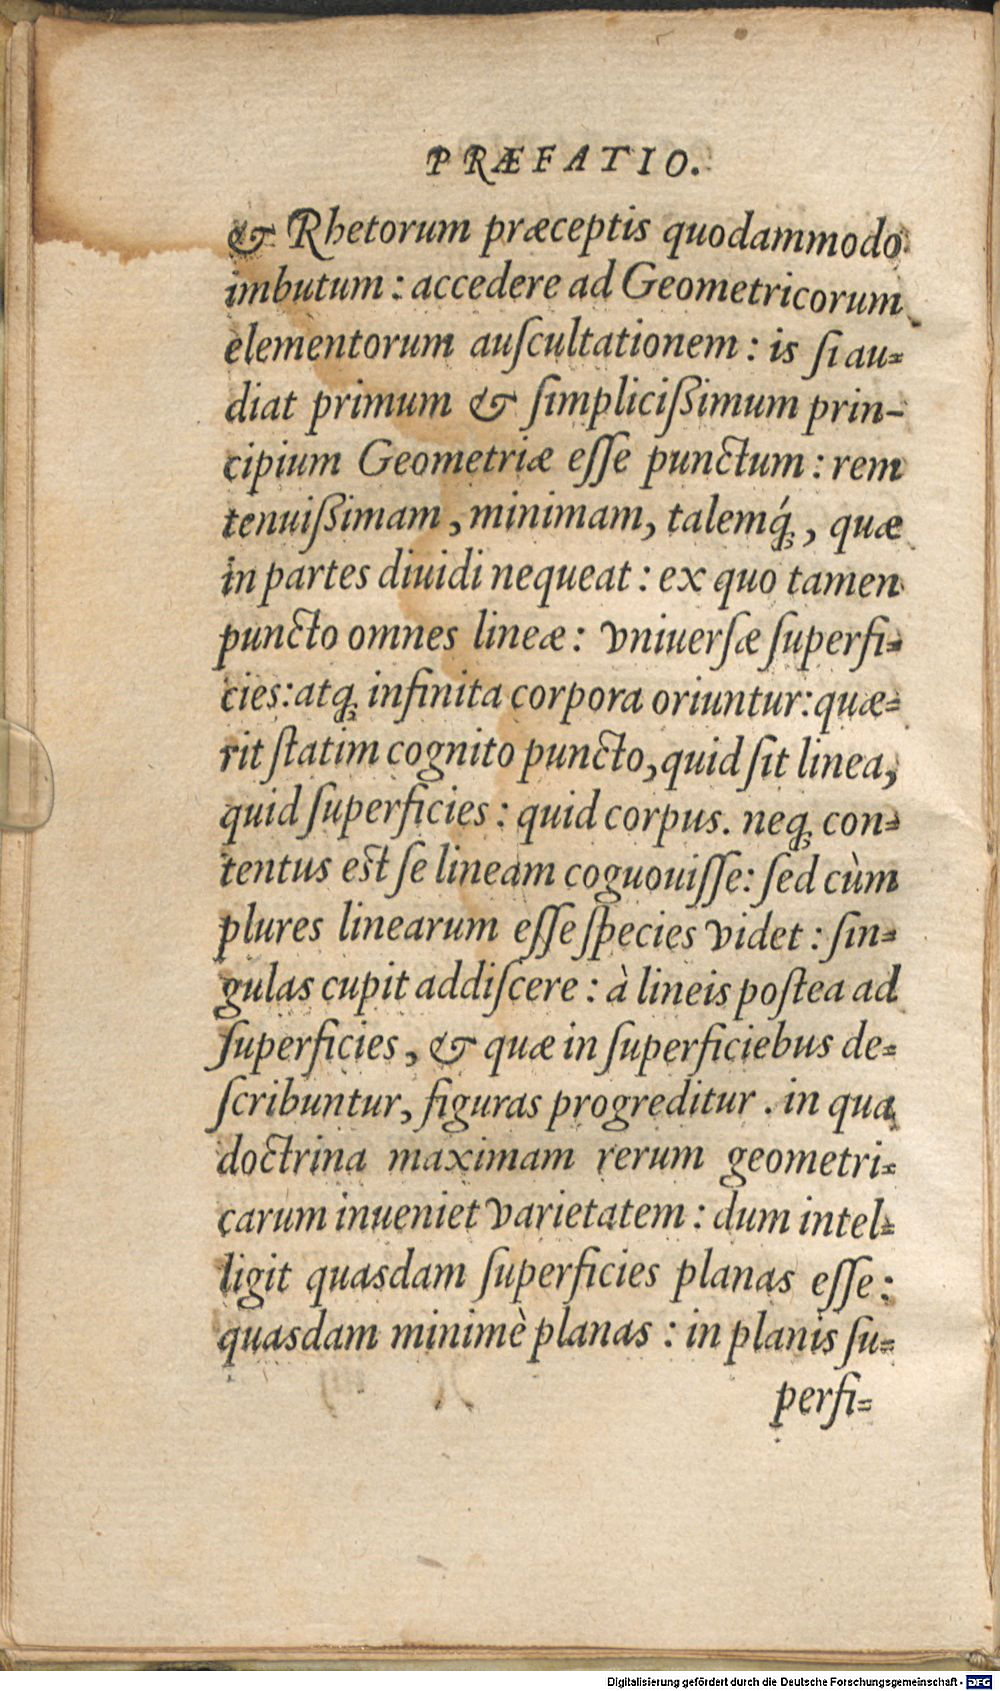 PRÆFATIO.
& Rhetorum præceptis quodammodo
imbutum : accedere ad Geometricorum
elementorum auſcultationem : is ſi au=
diat primum & ſimpliciſſimum prin-
cipium Geometriæ eſſe punctum : rem
tenuiſſimam, minimam, talemq́ꝫ, quæ
in partes diuidi nequeat : ex quo tamen
puncto omnes lineæ : vniuerſæ ſuperfi=
cies: atqꝫ infinita corpora oriuntur: quæ=
rit ſtatim cognito puncto, quid ſit linea,
quid ſuperficies : quid corpus. neqꝫ con=
tentus eſt ſe lineam coguouiſſe: ſed cùm
plures linearum eſſe ſpecies videt : ſin=
gulas cupit addiſcere : à lineis poſtea ad
ſuperficies, & quæ in ſuperficiebus de=
ſcribuntur, figuras progreditur. in qua
doctrina maximam rerum geometri=
carum inueniet varietatem : dum intel=
ligit quasdam ſuperficies planas eſſe :
quasdam minimè planas : in planis ſu=
perfi=
Digitalisierung gefördert durch die Deutsche Forschungsgemeinschaft - DFG